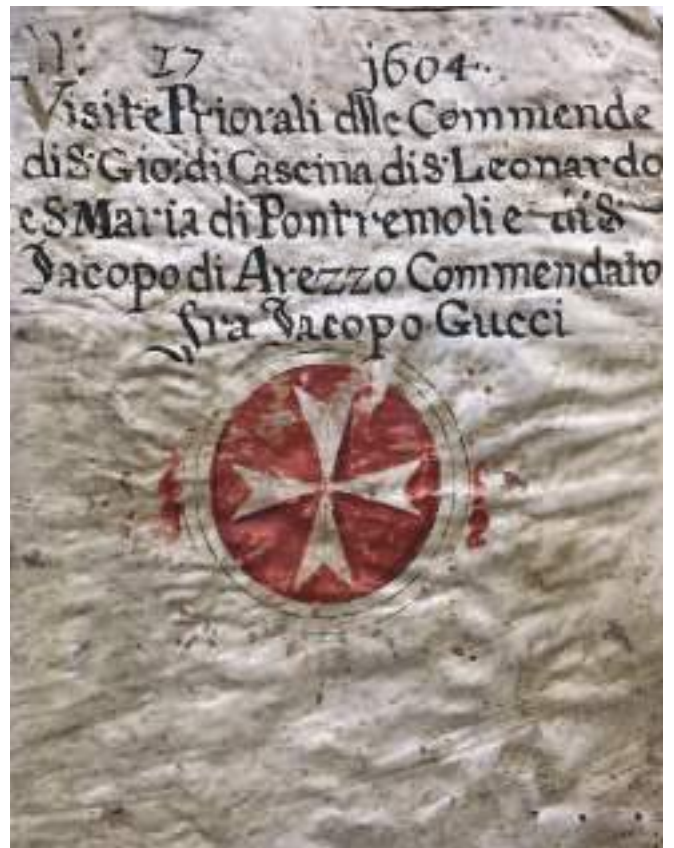 N: 17 j604..
Visite Priorali dlle Commende
di S. Gio: di Cascina di S. Leonardo
e S Maria di Pontremoli e di S.
Jacopo di Arezzo Commendato
fra Jacopo Gucci